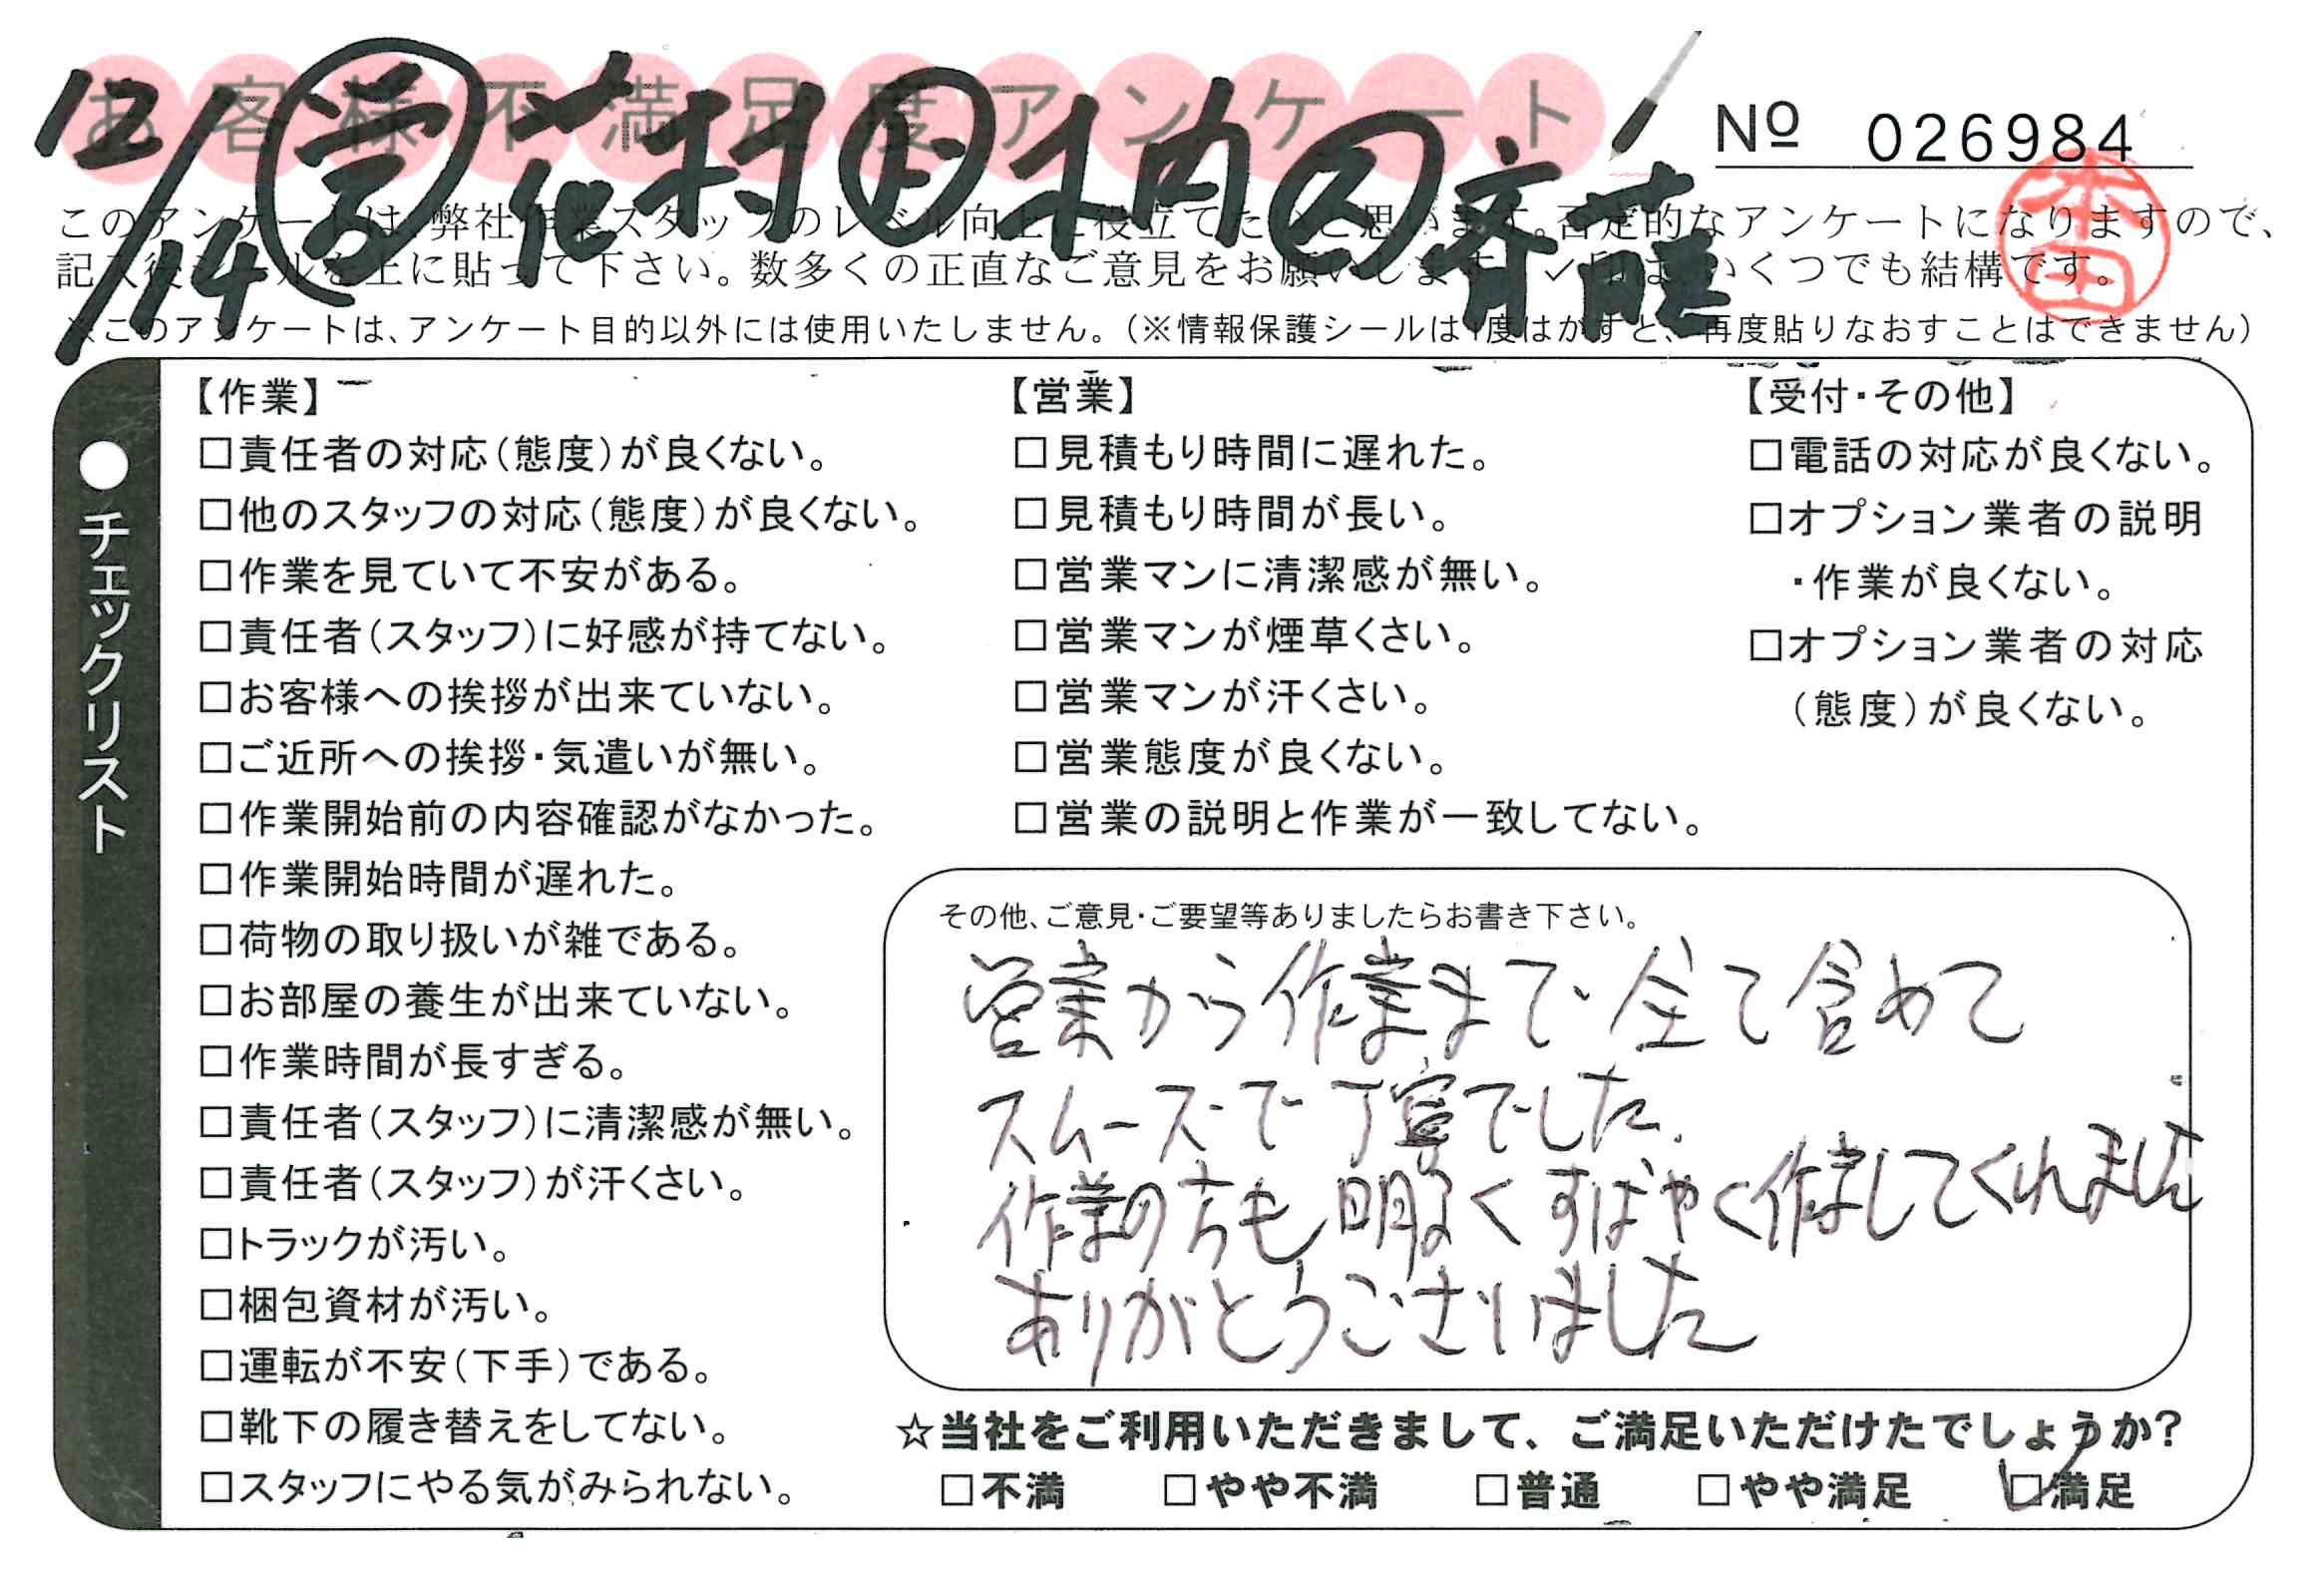 お客様不満足度アンケート
12/14 営 花村 ト 木内 人 斉藤
№ 026984
本田
このアンケートは、弊社作業スタッフのレベル向上に役立てたいと思います。否定的なアンケートになりますので、
記入後シールを上に貼って下さい。数多くの正直なご意見をお願いします。✓印は、いくつでも結構です。
※このアンケートは、アンケート目的以外には使用いたしません。(※情報保護シールは1度はがすと、再度貼りなおすことはできません)
●チェックリスト
【作業】
□責任者の対応(態度)が良くない。
□他のスタッフの対応(態度)が良くない。
□作業を見ていて不安がある。
□責任者(スタッフ)に好感が持てない。
□お客様への挨拶が出来ていない。
□ご近所への挨拶・気遣いが無い。
□作業開始前の内容確認がなかった。
□作業開始時間が遅れた。
□荷物の取り扱いが雑である。
□お部屋の養生が出来ていない。
□作業時間が長すぎる。
□責任者(スタッフ)に清潔感が無い。
□責任者(スタッフ)が汗くさい。
□トラックが汚い。
□梱包資材が汚い。
□運転が不安(下手)である。
□靴下の履き替えをしてない。
□スタッフにやる気がみられない。
【営業】
□見積もり時間に遅れた。
□見積もり時間が長い。
□営業マンに清潔感が無い。
□営業マンが煙草くさい。
□営業マンが汗くさい。
□営業態度が良くない。
□営業の説明と作業が一致してない。
【受付・その他】
□電話の対応が良くない。
□オプション業者の説明
・作業が良くない。
□オプション業者の対応
(態度)が良くない。
その他、ご意見・ご要望等ありましたらお書き下さい。
営業から作業まで全て含めて
スムーズで丁寧でした。
作業の方も明るくすばやく作業してくれました
ありがとうございました
☆当社をご利用いただきまして、ご満足いただけたでしょうか?
□不満 □やや不満 □普通 □やや満足 ☑満足